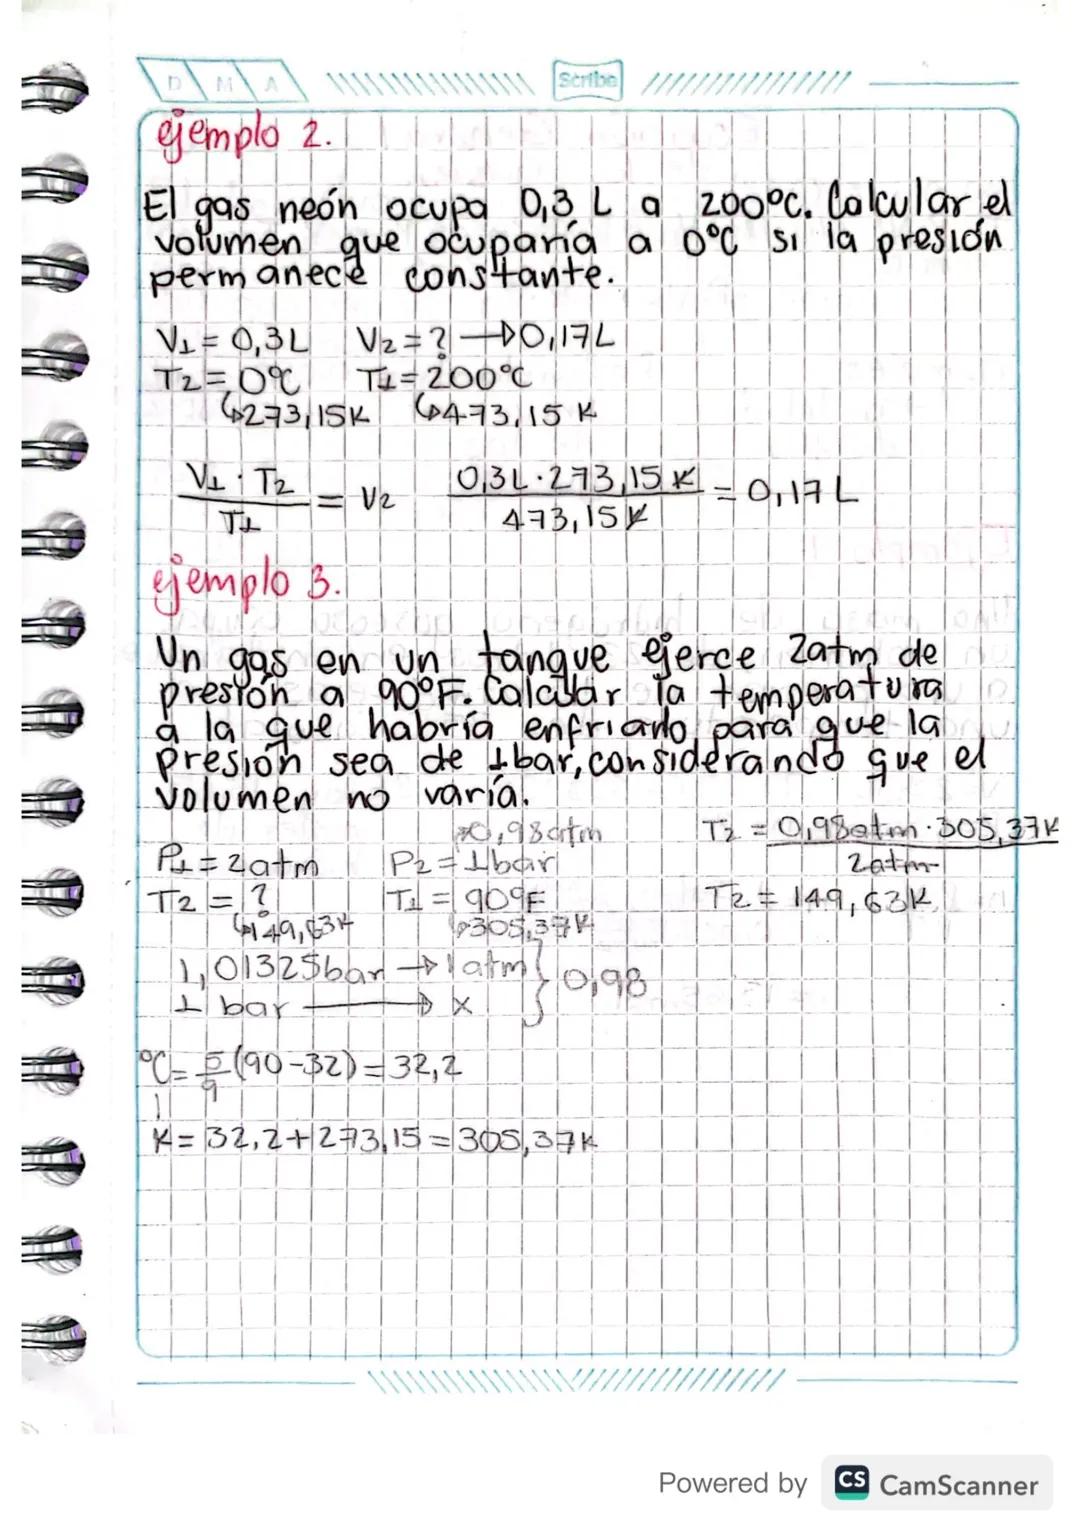 D M A
Scribe
ejemplo 2.
El gas neón ocupa 0,3 L a 200ºC. Calcular el
volumen que ocuparía a 0ºC si la presión
permanece constante.
V1 = 0,3L V2 = ? → 0,17L
T2 = 0ºC T1 = 200ºC
↳273,15K ↳473,15 K
V1 · T2 / T1 = V2 0,3L · 273,15 K / 473,15 K = 0,17 L
ejemplo 3.
Un gas en un tanque ejerce 2atm de
presión a 90ºF. Calcular la temperatura
a la que habría enfriarlo para que la
presión sea de 1bar, considerando que el
volumen no varía.
→0,98atm
P1 = 2atm P2 = 1bar
T2 = ? T1 = 90ºF
↳149,63K ↳305,37K
T2 = 0,98atm · 305,37K / 2atm
T2 = 149,63K
1,01325bar → 1atm } 0,98
1 bar → x
ºC = 5/9 (90-32) = 32,2
K = 32,2 + 273,15 = 305,37K
Powered by CS CamScanner